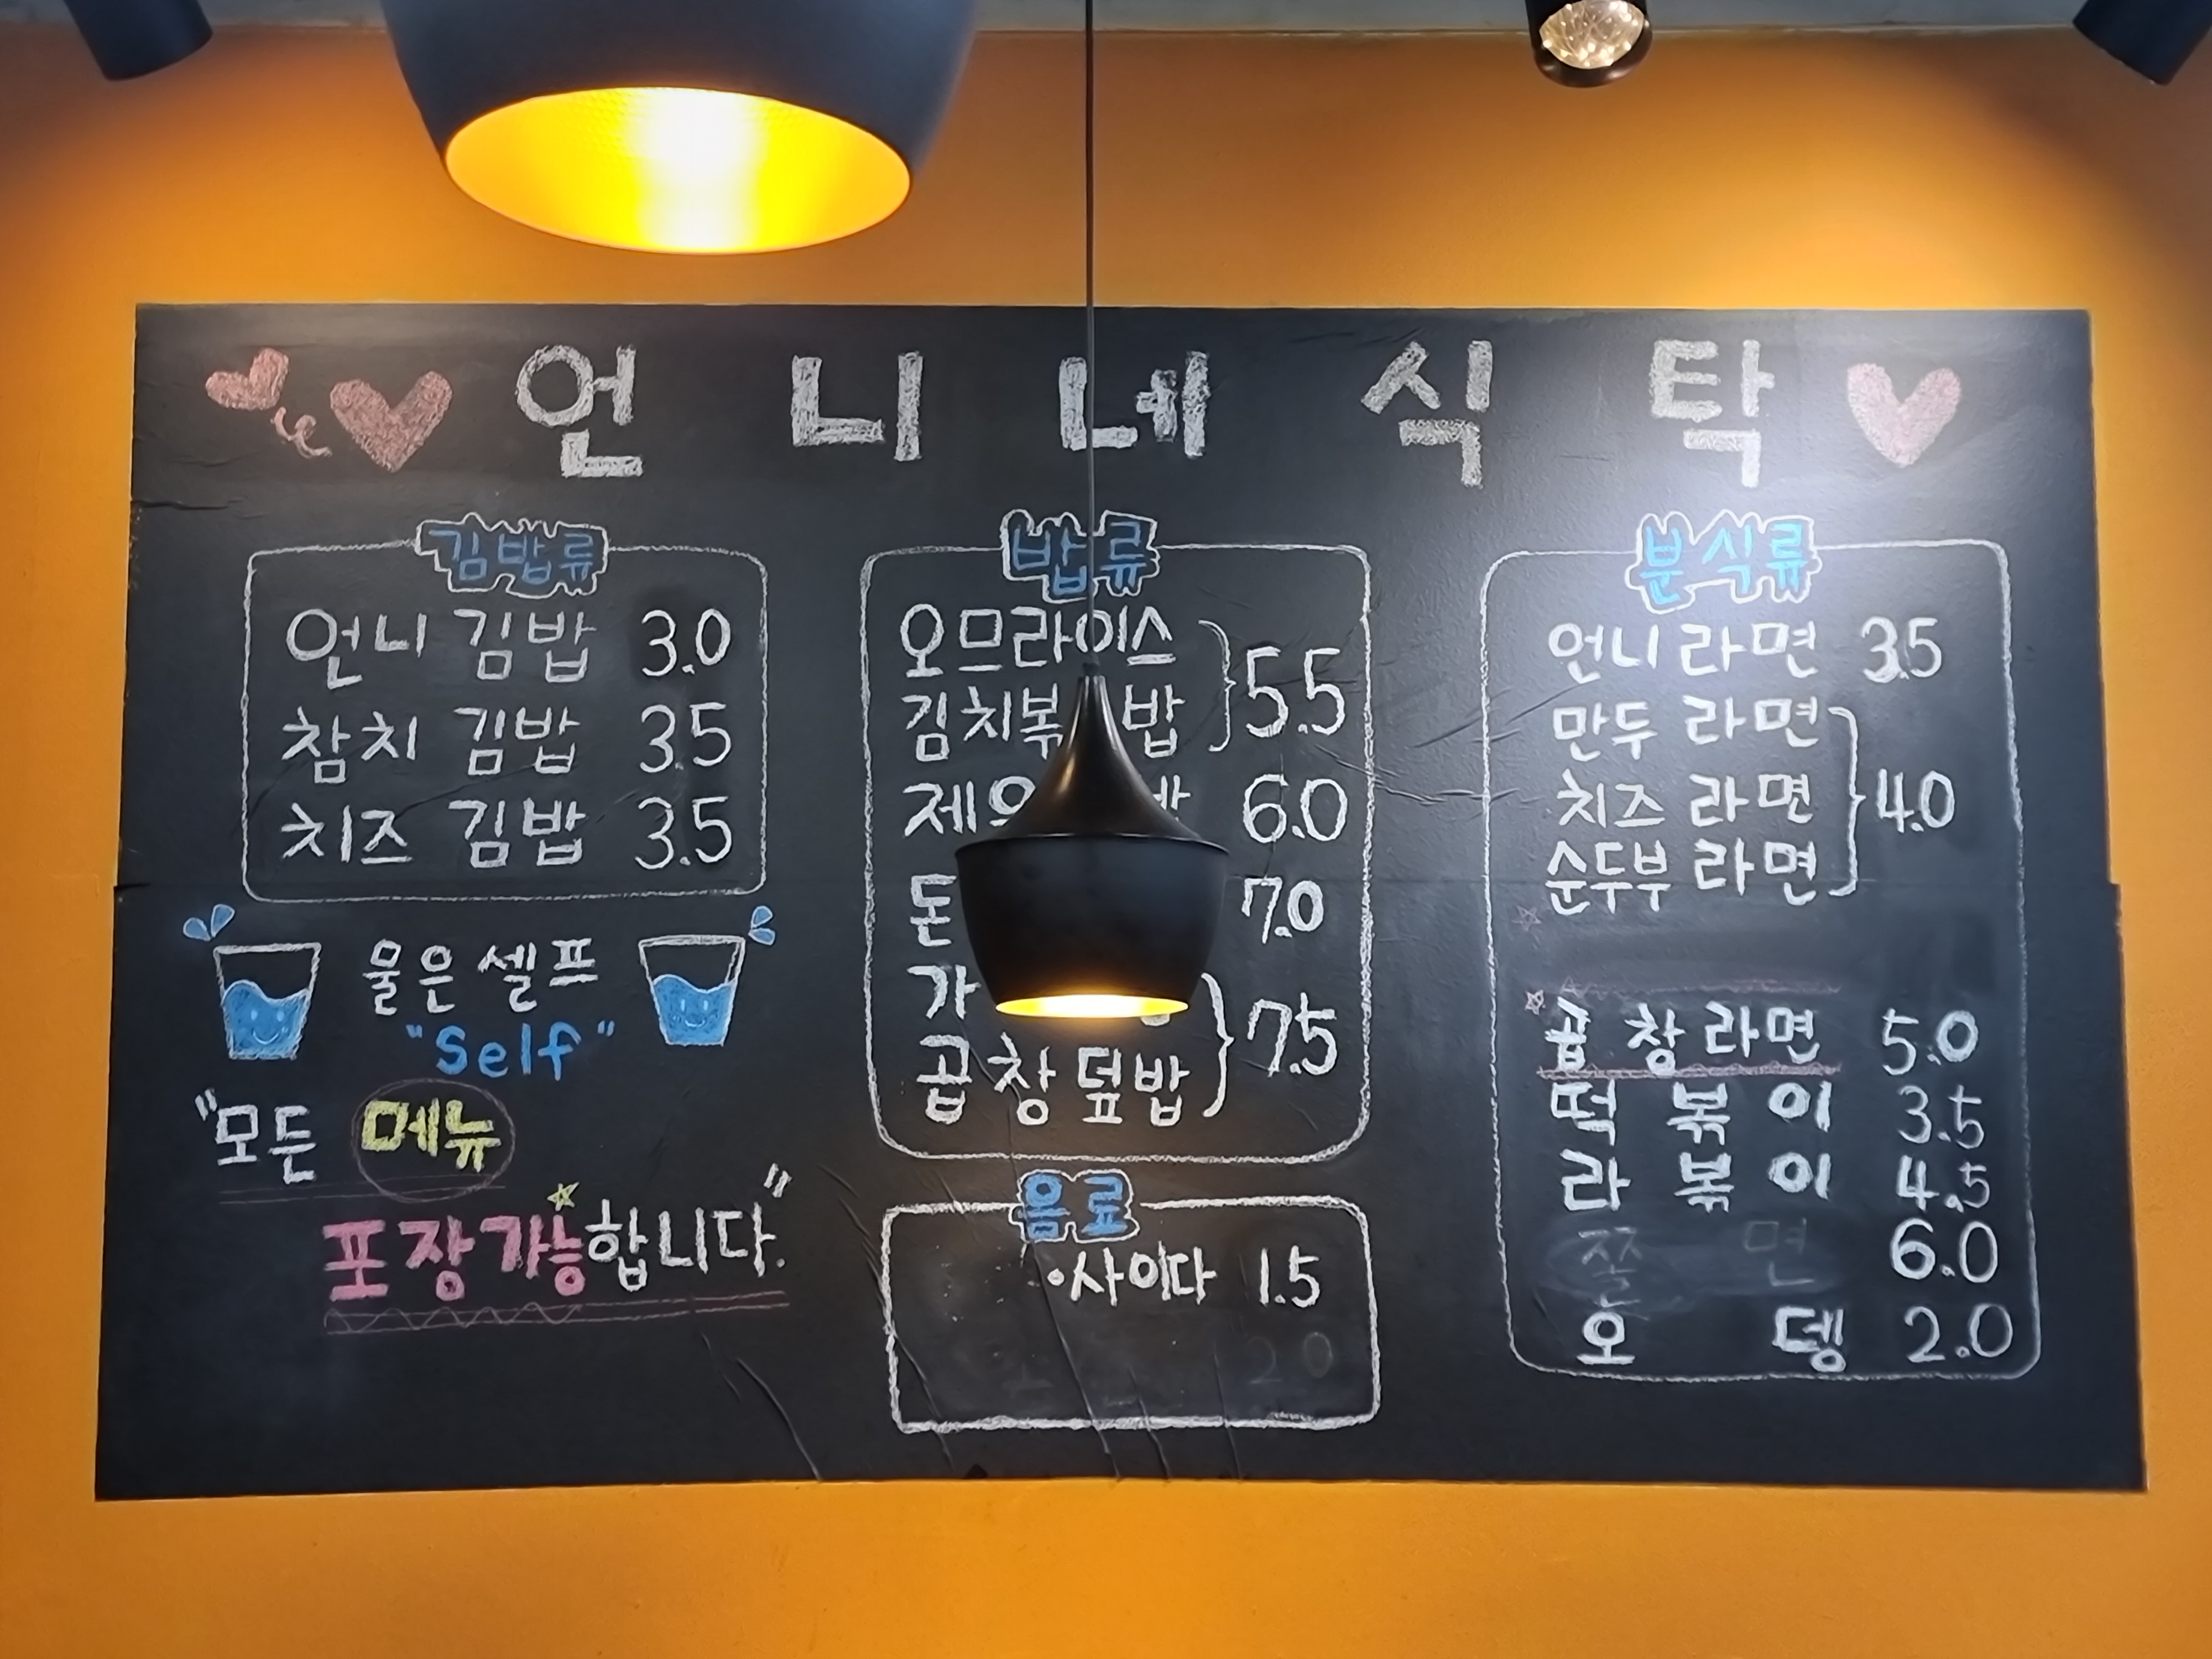 언니네식탁
김밥류
언니 김밥 3.0
참치 김밥 3.5
치즈 김밥 3.5
물은 셀프
"Self"
"모든 메뉴
포장가능합니다."
밥류
오므라이스
김치볶 밥
5.5
6.0
7.0
곱창덮밥
7.5
음료
·사이다 1.5
분식류
언니 라면 3.5
만두 라면
치즈 라면
순두부 라면
4.0
곱창라면 5.0
떡볶이 3.5
라볶이 4.5
쫄면 6.0
오뎅 2.0